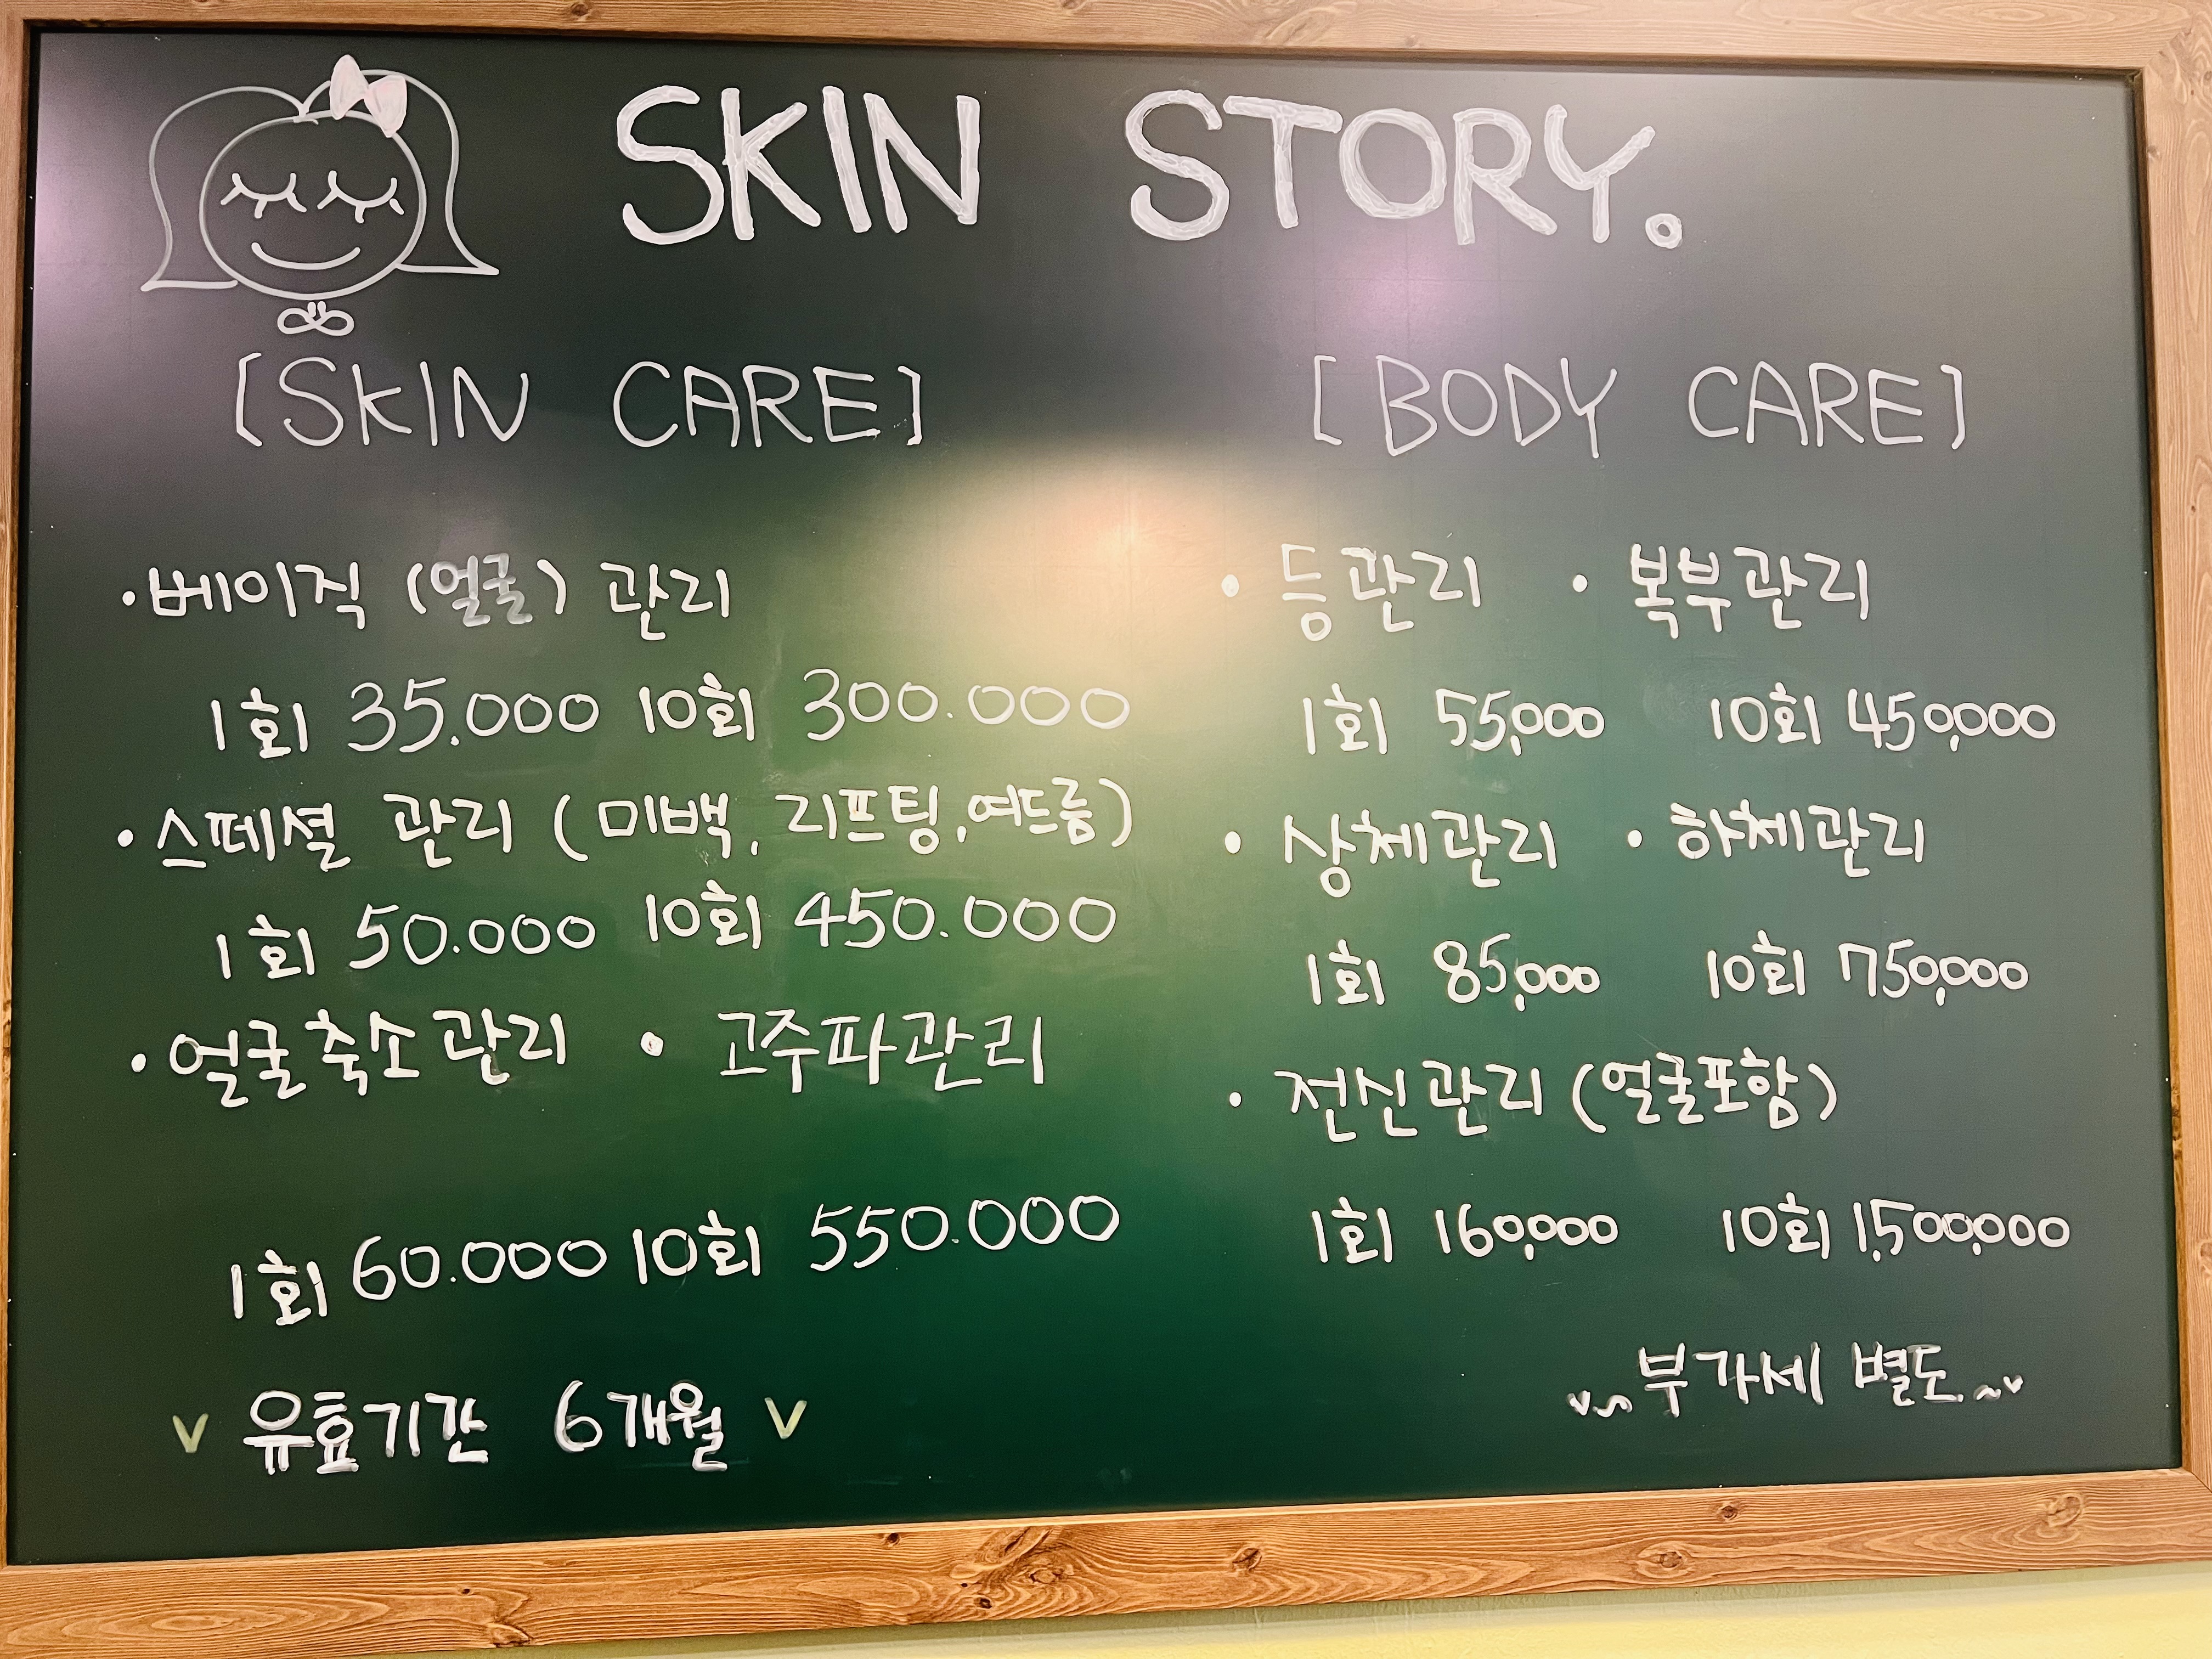 SKIN STORY.
[SKIN CARE]
•베이직 (얼굴) 관리
1회 35.000 10회 300.000
•스페셜 관리 (미백, 리프팅, 여드름)
1회 50.000 10회 450.000
•얼굴축소관리 • 고주파관리
1회 60.000 10회 550.000
v 유효기간 6개월 v
[BODY CARE]
• 등관리 • 복부관리
1회 55,000 10회 450,000
• 상체관리 • 하체관리
1회 85,000 10회 750,000
• 전신관리 (얼굴포함)
1회 160,000 10회 1,500,000
부가세 별도